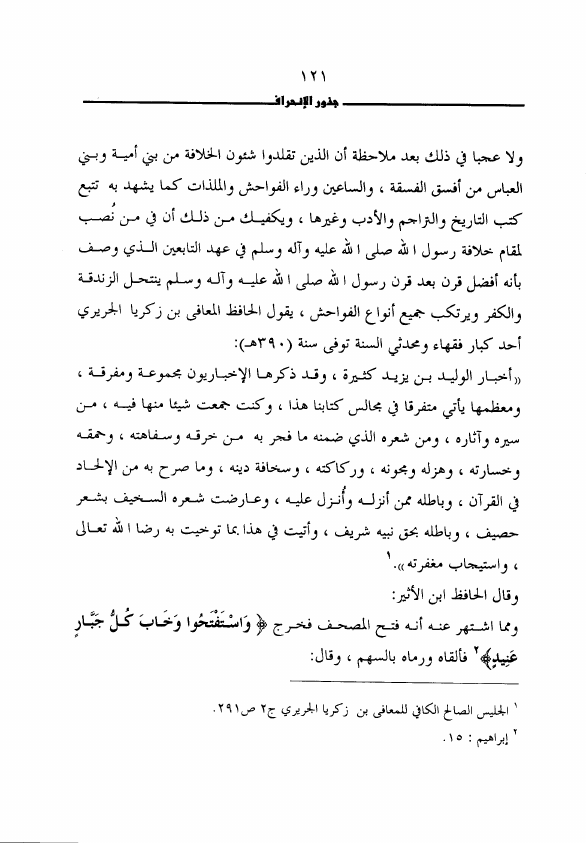 ١٢١
جذور الإنحراف
ولا عجبا في ذلك بعد ملاحظة أن الذين تقلدوا شئون الخلافة من بني أمية وبني
العباس من أفسق الفسقة ، والساعين وراء الفواحش والملذات كما يشهد به تتبع
كتب التاريخ والتراجم والأدب وغيرها ، ويكفيك من ذلك أن في من نُصب
لمقام خلافة رسول الله صلى الله عليه وآله وسلم في عهد التابعين الذي وصف
بأنه أفضل قرن بعد قرن رسول الله صلى الله عليه وآله وسلم ينتحل الزندقة
والكفر ويرتكب جميع أنواع الفواحش ، يقول الحافظ المعافى بن زكريا الجريري
أحد كبار فقهاء ومحدثي السنة توفى سنة (٣٩٠هـ):
«أخبار الوليد بن يزيد كثيرة ، وقد ذكرها الإخباريون مجموعة ومفرقة ،
ومعظمها يأتي متفرقا في مجالس كتابنا هذا ، وكنت جمعت شيئا منها فيه ، من
سيره وآثاره ، ومن شعره الذي ضمنه ما فجر به من خرقه وسفاهته ، وحمقه
وخسارته ، وهزله ومجونه ، وركاكته ، وسخافة دينه ، وما صرح به من الإلحاد
في القرآن ، وباطله ممن أنزله وأُنزل عليه ، وعارضت شعره السخيف بشعر
حصيف ، وباطله بحق نبيه شريف ، وأتيت في هذا بما توخيت به رضا الله تعالى
، واستيجاب مغفرته».١
وقال الحافظ ابن الأثير:
ومما اشتهر عنه أنه فتح المصحف فخرج ﴿ وَاسْتَفْتَحُوا وَخَابَ كُلُّ جَبَّارٍ
عَنِيدٍ﴾٢ فألقاه ورماه بالسهم ، وقال:
١ الجليس الصالح الكافي للمعافى بن زكريا الجريري ج٢ ص٢٩١.
٢ إبراهيم : ١٥.